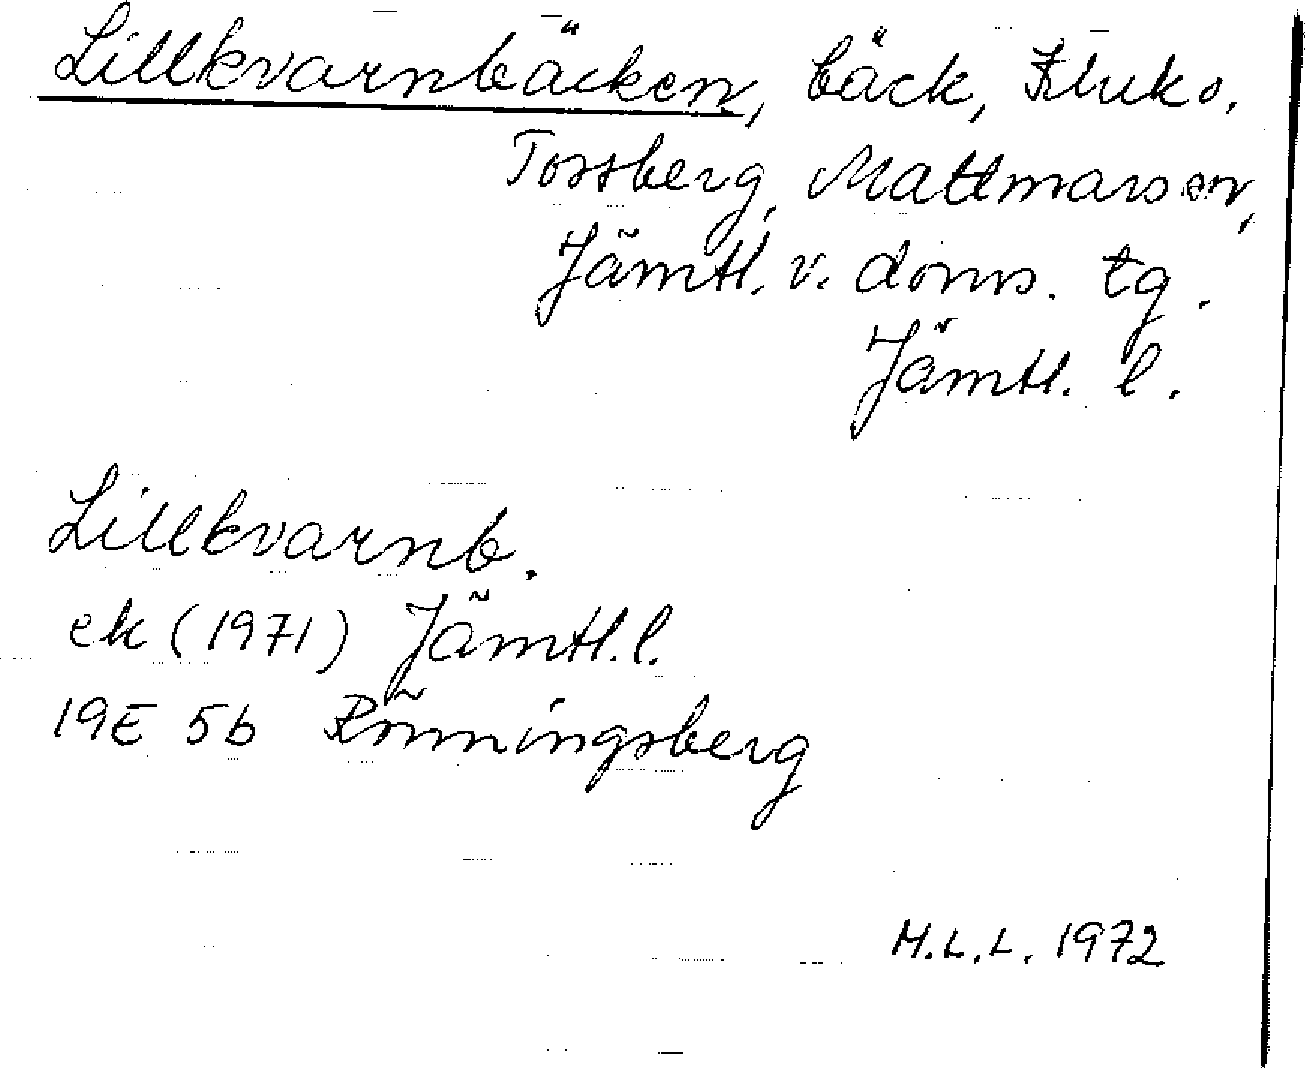 Lillkvarnbäcken, bäck, Kluks,
Tossberg, Mattmarsen,
Jämtl. v. doms. tg.
Jämtl. l.
Lillkvarnb.
ek (1971) Jämtl. l.
19E 5b Rönningsberg
M.L.L. 1972